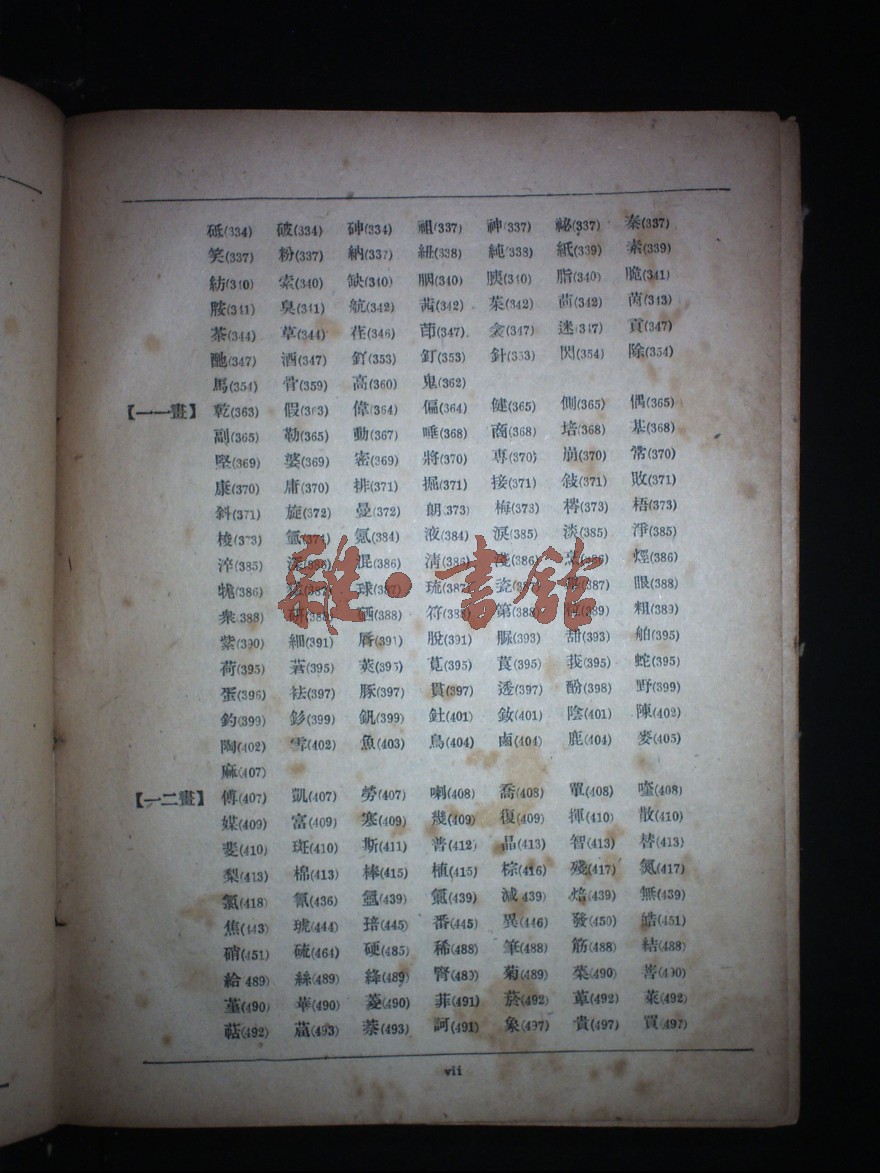 砥(334) 破(334) 砷(334) 祖(337) 神(337) 祕(337) 秦(337)
笑(337) 粉(337) 納(337) 紐(338) 純(338) 紙(339) 素(339)
紡(340) 索(340) 缺(340) 胭(340) 胰(340) 脂(340) 脆(341)
胺(341) 臭(341) 航(342) 茜(342) 茱(342) 茴(342) 茵(343)
茶(344) 草(344) 荏(346) (347) (347) 迷(347) 貢(347)
酏(347) 酒(347) 釘(353) 針(353) 閃(354) 除(354)
馬(354) 骨(359) 高(360) 鬼(362)
【一一畫】 乾(363) 假(363) 偉(364) 偏(364) 健(365) 側(365) 偶(365)
副(365) 勒(365) 動(367) 唾(368) 商(368) 培(368) 基(368)
堅(369) 婆(369) 密(369) 將(370) 專(370) 崩(370) 常(370)
康(370) 庸(370) 排(371) 掘(371) 接(371) 敍(371) 敗(371)
斜(371) 旋(372) 曼(372) 朗(373) 梅(373) 樗(373) 梧(373)
梭(373) 氫(374) 氪(384) 液(384) 淚(385) 淡(385) 淨(385)
淬(385) 深(386) 混(386) 清(386) (386) 烹(386) 烴(386)
(386) (387) 球(387) 琉(387) 瓷(387) (387) 眼(388)
衆(388) 研(388) 硒(388) 符(388) 第(388) (389) 粗(389)
紫(390) 細(391) 脣(391) 脫(391) 脲(393) 甜(393) 舶(395)
荷(395) (395) 莢(395) 莧(395) 莨(395) 莪(395) 蛇(395)
蛋(396) 祛(397) 豚(397) 貫(397) 透(397) 酚(398) 野(399)
釣(399) 釤(399) 釩(399) 釷(401) 釹(401) 陰(401) 陳(402)
陶(402) 雪(402) 魚(403) 鳥(404) 鹵(404) 鹿(404) 麥(405)
麻(407)
【一二畫】 傅(407) 凱(407) 勞(407) 喇(408) 喬(408) 單(408) 喹(408)
媒(409) 富(409) 寒(409) 幾(409) 復(409) 揮(410) 散(410)
斐(410) 斑(410) 斯(411) 普(412) 晶(413) 智(413) 替(413)
梨(413) 棉(413) 棒(415) 植(415) 棕(416) 殘(417) 氮(417)
氯(418) 氰(436) 氬(439) (439) 減(439) 焙(439) 無(439)
焦(443) 琥(444) 琣(445) 番(445) 異(446) 發(450) 皓(451)
硝(451) 硫(464) 硬(485) 稀(488) 筆(488) 筋(488) 結(488)
給(489) 絲(489) 絳(489) 腎(489) 菊(489) 菜(490) 菩(490)
堇(490) 華(490) 菱(490) 菲(491) 菸(492) 萆(492) 萊(492)
萜(492) (493) 萘(493) 訶(491) 象(497) 貴(497) 買(497)
雜·書館
vii